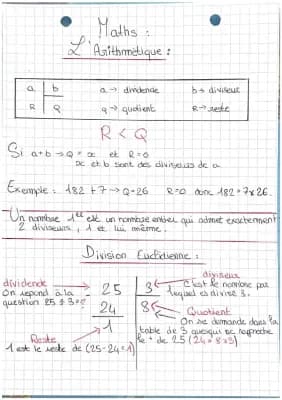 Maths :
L'Arithmétique :
a | b
R | Q
a → dividende
b → diviseur
q → quotient
R → reste
R < Q
Si a÷b → Q = x et R=0
x et b sont des diviseurs de a
Exemple : 182 ÷ 7 → Q=26 R=0 donc 182=7x26.
Un nombre 1er est un nombre entier qui admet exactement
2 diviseurs, 1 et lui même.
Division Euclidienne :
dividende
On répond à la
question 25 ÷ 3 = ?
- 25 | 3
24 | 8
1
diviseur
C'est le nombre par
lequel on divise
Quotient
On se demande dans la
table de 3 quoi se rapproche
le + de 25 (24 = 8x3)
Reste
1 est le reste de (25-24=1)